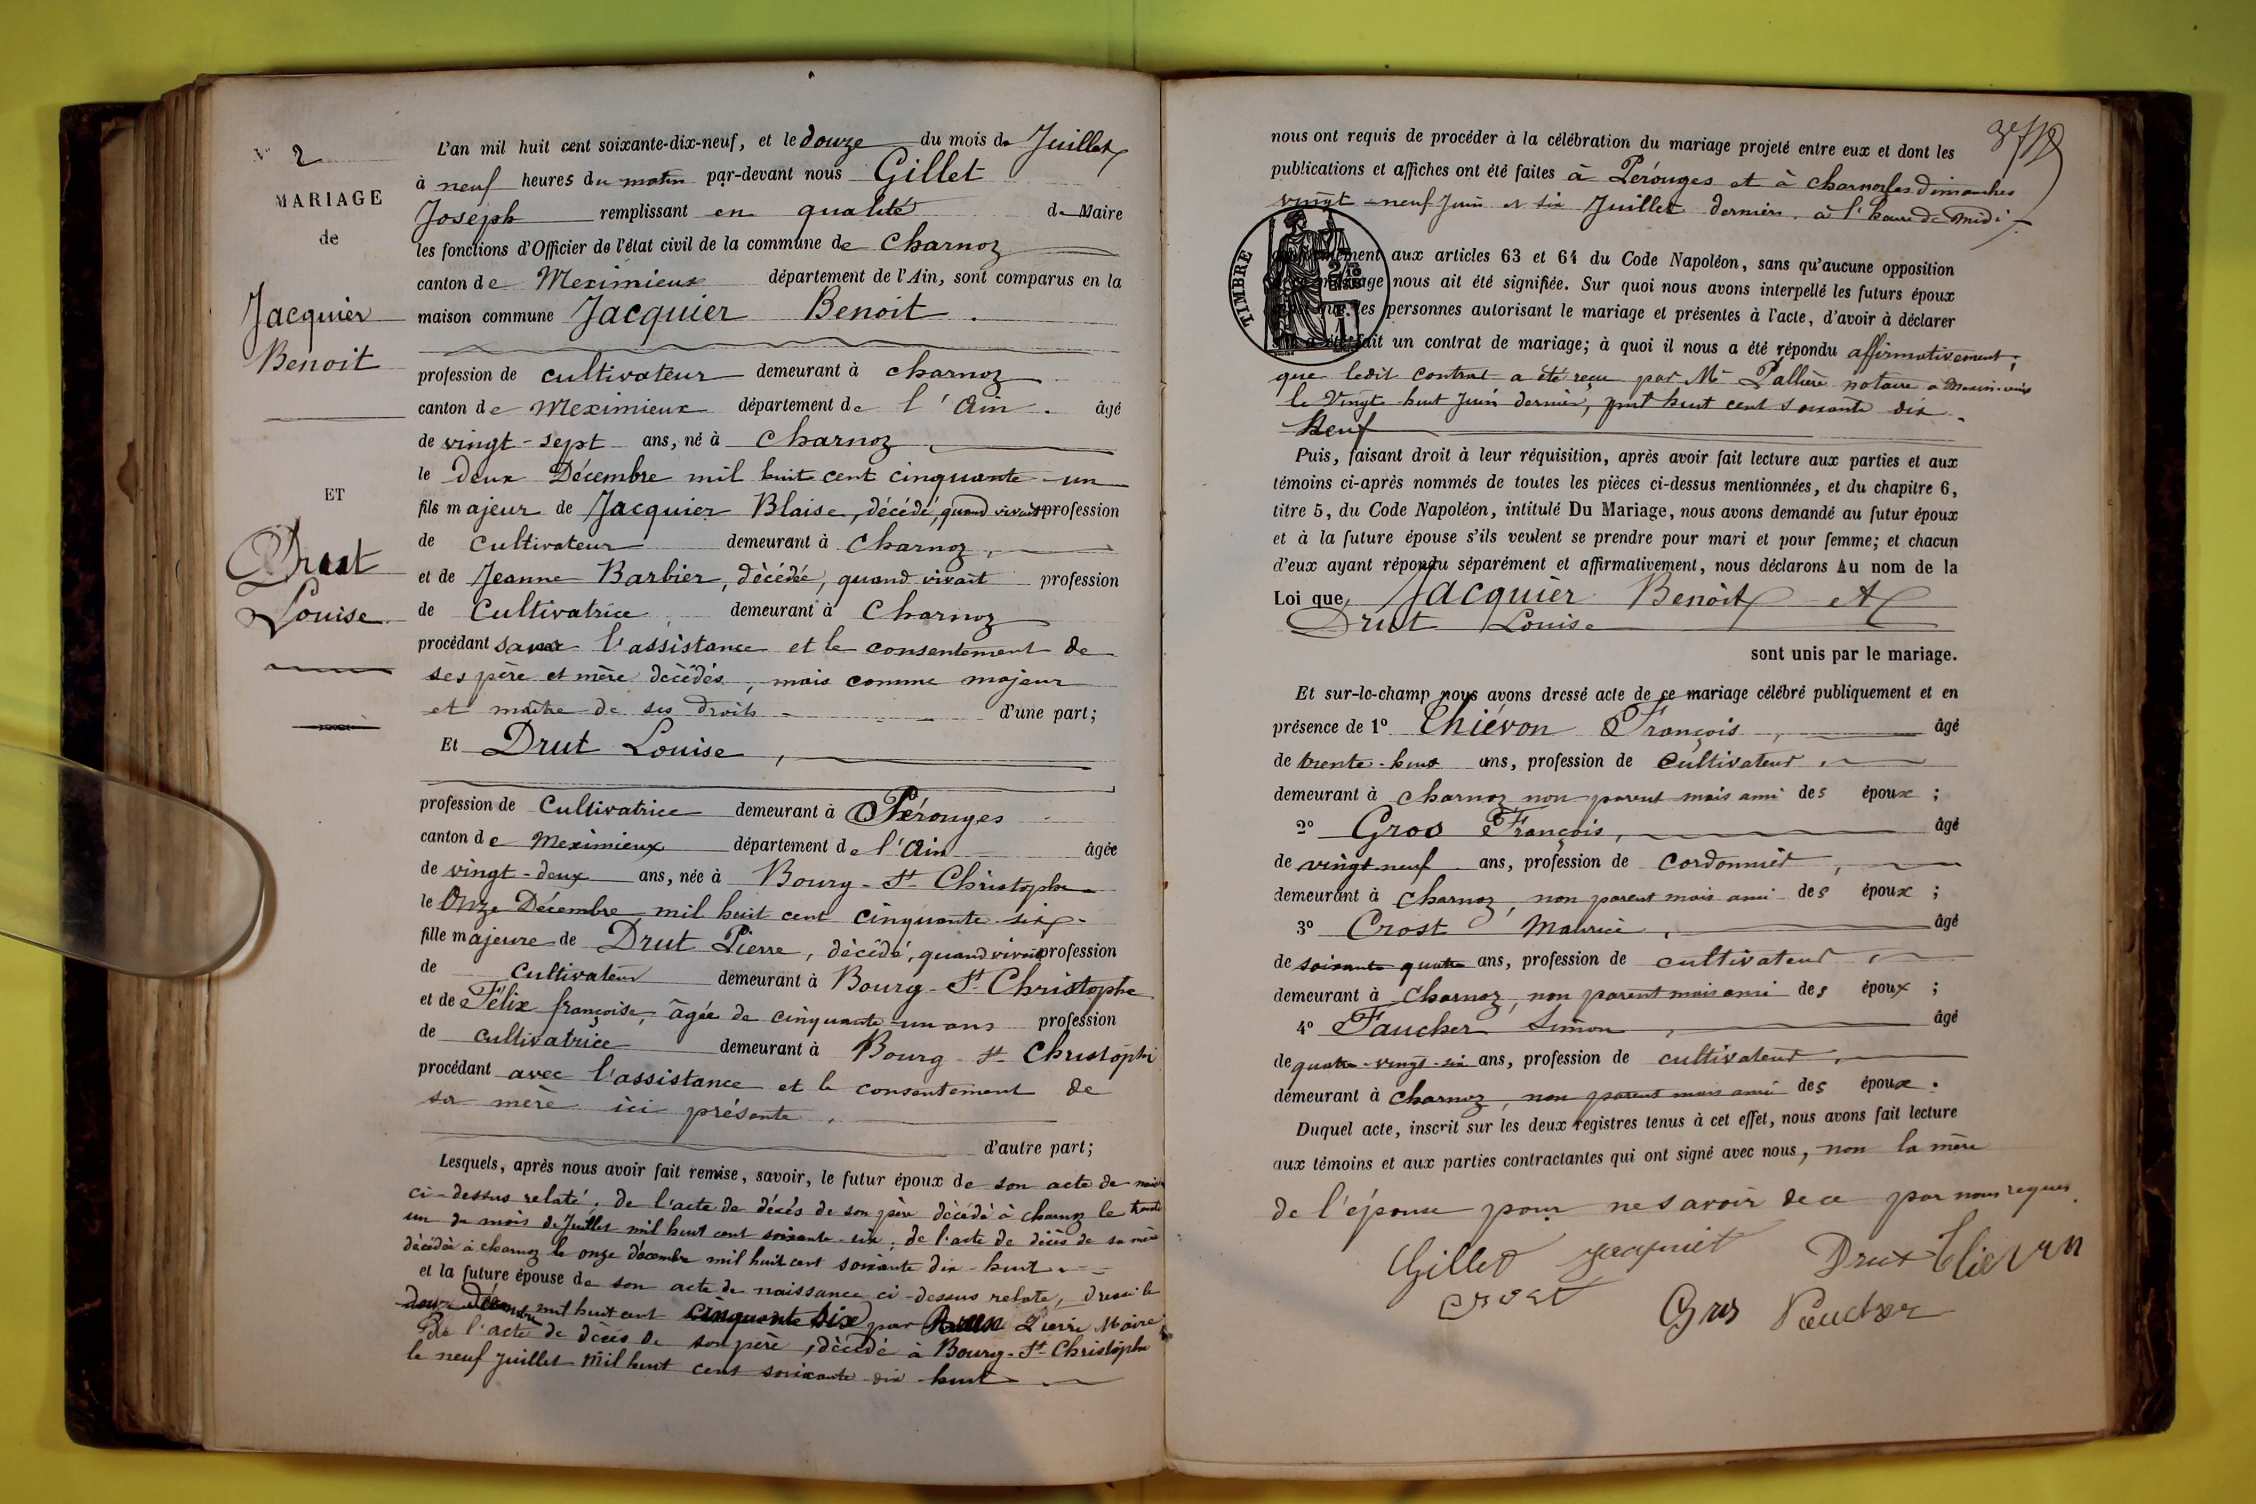 N° 2
MARIAGE
de
Jacquier
Benoit
ET
Drut
Louise
L'an mil huit cent soixante-dix-neuf, et le douze du mois de Juillet
à neuf heures du matin par-devant nous Gillet
Joseph remplissant en qualité de Maire
les fonctions d'Officier de l'état civil de la commune de Charnoz
canton de Meximieux département de l'Ain, sont comparus en la
maison commune Jacquier Benoit.
profession de cultivateur demeurant à charnoz
canton de Meximieux département de l'Ain. âgé
de vingt-sept ans, né à Charnoz
le deux Décembre mil huit cent cinquante-un
fils majeur de Jacquier Blaise, décédé, quand vivait profession
de cultivateur demeurant à Charnoz,
et de Jeanne Barbier, décédée, quand vivait profession
de Cultivatrice demeurant à Charnoz
procédant sans l'assistance et le consentement de
ses père et mère décédés, mais comme majeur
et maître de ses droits d'une part;
Et Drut Louise,
profession de Cultivatrice demeurant à Pérouges
canton de Meximieux département de l'Ain âgée
de vingt-deux ans, née à Bourg-St-Christophe
le Onze Décembre mil huit cent cinquante-six
fille majeure de Drut Pierre, décédé, quand vivait profession
de Cultivateur demeurant à Bourg-St-Christophe
et de Félix françoise, âgée de cinquante-un ans profession
de cultivatrice demeurant à Bourg-St-Christophe
procédant avec l'assistance et le consentement de
sa mère ici présente,
d'autre part;
Lesquels, après nous avoir fait remise, savoir, le futur époux de son acte de
ci-dessus relaté, de l'acte de décès de son père décédé à charnoz le trente
un du mois de Juillet mil huit cent soixante-six, de l'acte de décès de sa mère
décédée à charnoz le onze décembre mil huit cent soixante dix-huit
et la future épouse de son acte de naissance ci-dessus relaté, dressé le
douze Décembre mil huit cent cinquante six par Pierre Maire
de l'acte de décès de son père, décédé à Bourg-St-Christophe
le neuf Juillet mil huit cent soixante dix huit
nous ont requis de procéder à la célébration du mariage projeté entre eux et dont les
publications et affiches ont été faites à Pérouges et à charnoz les dimanches
vingt-neuf Juin et six Juillet derniers, à l'heure de midi
TIMBRE
conformément aux articles 63 et 64 du Code Napoléon, sans qu'aucune opposition
mariage nous ait été signifiée. Sur quoi nous avons interpellé les futurs époux
que les personnes autorisant le mariage et présentes à l'acte, d'avoir à déclarer
s'il a été fait un contrat de mariage; à quoi il nous a été répondu affirmativement,
que ledit contrat a été reçu par Me Pallière notaire a
le vingt huit Juin dernier, mil huit cent soixante dix
Neuf
Puis, faisant droit à leur réquisition, après avoir fait lecture aux parties et aux
témoins ci-après nommés de toutes les pièces ci-dessus mentionnées, et du chapitre 6,
titre 5, du Code Napoléon, intitulé Du Mariage, nous avons demandé au futur époux
et à la future épouse s'ils veulent se prendre pour mari et pour femme; et chacun
d'eux ayant répondu séparément et affirmativement, nous déclarons Au nom de la
Loi que, Jacquier Benoit et
Drut Louise
sont unis par le mariage.
Et sur-le-champ nous avons dressé acte de ce mariage célébré publiquement et en
présence de 1° Thiévon François, âgé
de trente-huit ans, profession de Cultivateur,
demeurant à charnoz non parent mais ami des époux;
2° Gros François, âgé
de vingt neuf ans, profession de cordonnier,
demeurant à Charnoz, non parent mais ami des époux;
3° Crost Maurice, âgé
de soixante quatre ans, profession de cultivateur,
demeurant à Charnoz, non parent mais ami des époux;
4° Faucher Simon, âgé
de quatre-vingt-six ans, profession de cultivateur,
demeurant à Charnoz, non parent mais ami des époux.
Duquel acte, inscrit sur les deux registres tenus à cet effet, nous avons fait lecture
aux témoins et aux parties contractantes qui ont signé avec nous, non la mère
de l'épouse pour ne savoir de ce par nous requis.
Gillet Jacquiet Drut Thievon
Crost Gros Faucher